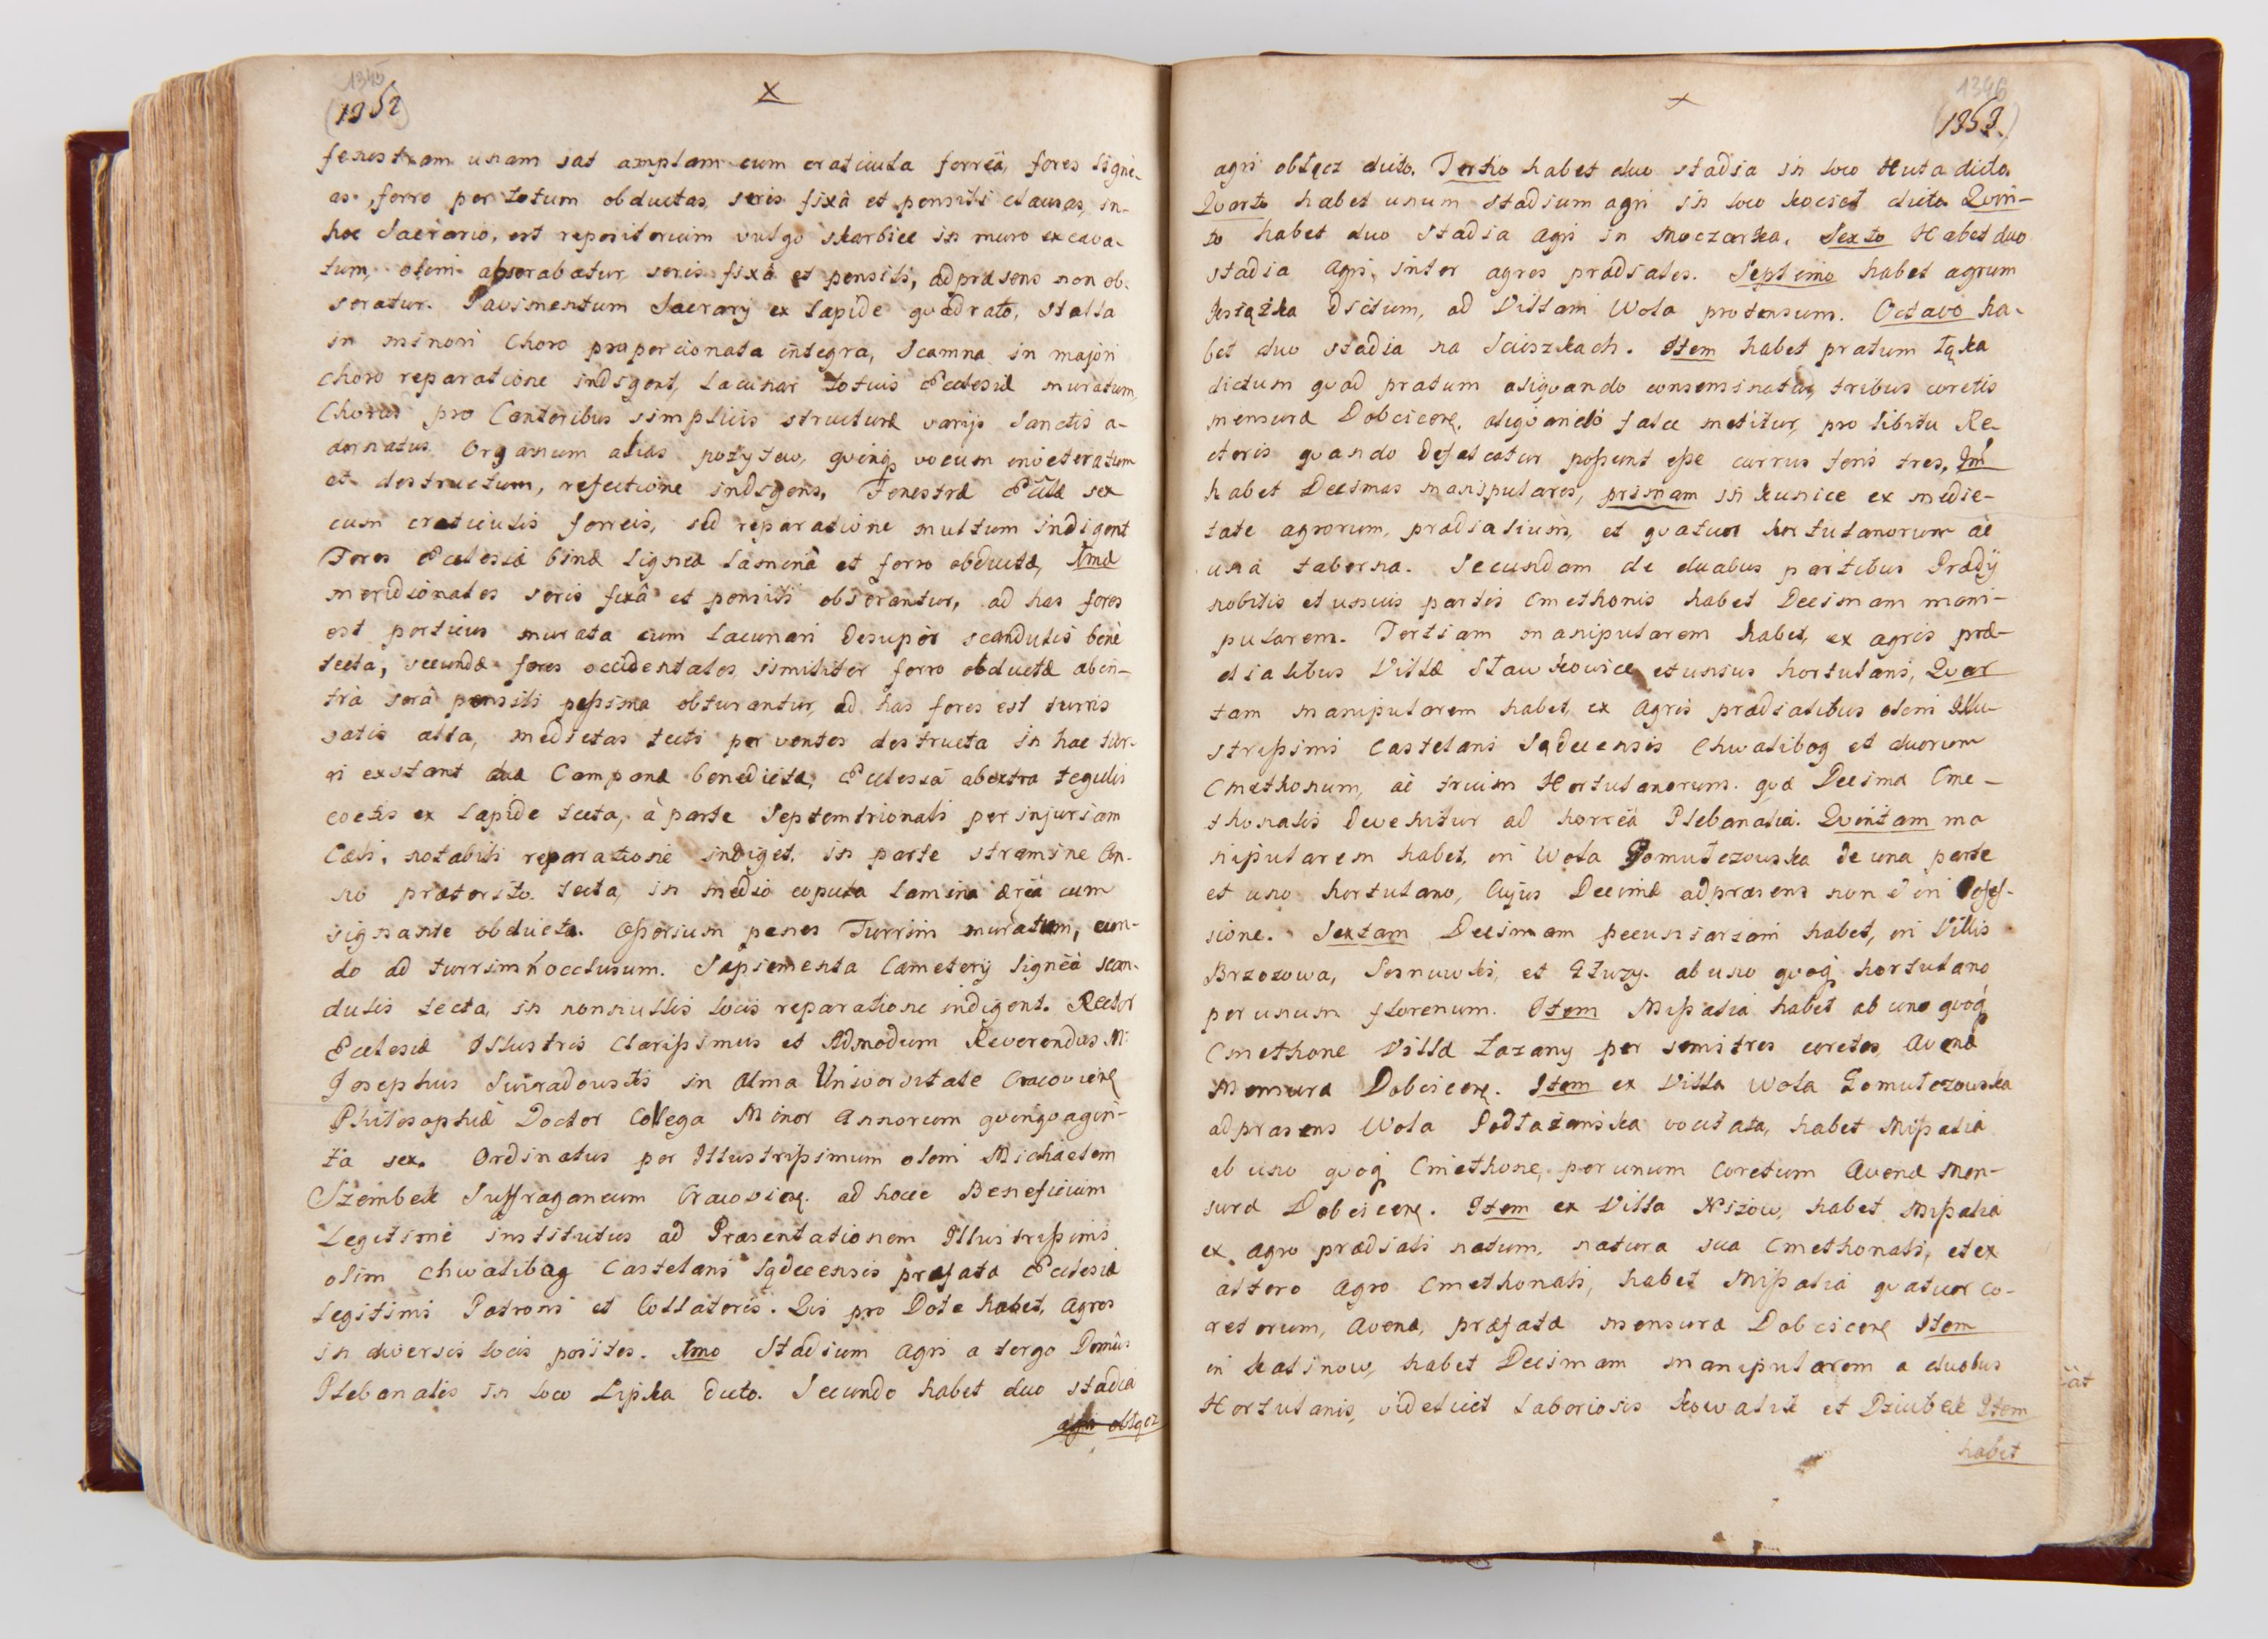 1345
(1352)
X
fenestram unam sat amplam cum craticula ferreâ, fores ligne-
as, ferro per totum obductas, seris fixâ et pensili clausas, in-
hoc Sacrario, est repositorium vulgo skarbiec in muro excava-
tum, olim abserabatur, seris fixâ et pensili, ad præsens non ob-
seratur. Pavimentum Sacrarij ex lapide qvadrato, Stalla
in minori Choro proporcionata integra, Scamna in majori
choro reparatione indigent, Lacunar totius Ecclesiæ muratum,
Chorus pro Cantoribus simplicis structuræ varijs Sanctis a-
dornatus. Organum alias pozytew, qvinqȝ vocum inveteratum
et destructum, refectione indigens. Fenestræ Ecclæ sex
cum craticulis ferreis, sed reparatione multum indigent
Fores Ecclesiæ binæ ligneæ laminâ et ferro obductæ, 1mæ
meridionales seris fixâ et pensili obserantur, ad has fores
est porticus murata cum lacunari desuper scandulis benè
tecta, secundæ fores occidentales similiter ferro obductæ abin-
tra serâ pensili pessima obturantur, ad has fores est turris
satis alta, medietas tecti per ventos destructa in hac tur-
ri extant duæ Campanæ benedictæ, Ecclesia abextra tegulis
coctis ex lapide tecta, à parte Septemtrionali per injuriam
Cæli, notabili reparatione indiget, in parte stramine An-
no præterito tecta, in medio copula lamina æreâ cum
signante obducta. Ossorium penes Turrim muratum, eun-
do ad turrim occlusum. Sæpimenta Cæmeterij ligneâ scan-
dulis tecta, in nonnullis locis reparatione indigent. Rector
Ecclesiæ Illustris Clarissimus et Admodum Reverendus M:
Josephus Swiradowski in Alma Universitate Cracovieñ
Philosophiæ Doctor Collega Minor Annorum qvinqvagin-
ta sex. Ordinatus per Illustrissimum olim Michaelem
Szembek Suffraganeum Cracovieñ. ad hocce Beneficium
Legitimè institutus ad Præsentationem Illustrissimi
olim Chwalibog Castelani Sądecensis præfatæ Ecclesiæ
legitimi Patroni et Collatoris. Qui pro Dote habet, Agros
in diversis locis positos. 1mo Stadium Agri a tergo Domûs
Plebanalis in loco Lipka dicto. Secundo habet duo stadia
agri obłącz
1346
(1353.)
X
agri obłącz dicto. Tertio habet duo stadia in loco Huta dicto.
Qvarto habet unum stadium agri in loco Kocieł dicto Qvin-
to habet duo Stadia Agri in Moczarka. Sexto Habet duo
stadia Agri, inter agros prædiales. Septimo habet agrum
Książka dictum, ad Villam Wola protensum. Octavo ha-
bet duo stadia na Scieszkach. Item habet pratum Łąka
dictum qvod pratum aliqvando conseminatur tribus coretis
mensuræ Dobciceñ. aliqvando falce metitur, pro libitu Re-
ctoris qvando defalcatur possunt esse currus feni tres, Im
habet Decimas manipulares, primam in Kunice ex medie-
tate agrorum, prædialium, et qvatuor hortulanorum ac
una taberna. Secundam de duabus partibus Prædij
nobilis et unius partis Cmethonis habet Decimam mani-
pularem. Tertiam manipularem habet, ex agris præ-
dialibus Villæ Sławkowice et unius hortulani, Qvar
tam manipularem habet, ex Agris prædialibus olim Illu-
strissimi Castelani Sądecensis Chwalibog et duorum
Cmethonum, ac trium Hortulanorum. qvæ Decima Cme-
thonalis devehitur ad horreâ Plebanalia. Qvintam ma
nipularem habet, in Wola Gomułczowska de una parte
et uno hortulano, Cujus Decimæ ad præsens non ẽ in Possęs-
sione. Sextam Decimam pecuniariam habet, in Villis
Brzozowa, Sosnowski, et Głuzy. ab uno qvoqȝ hortulano
per unum florenum. Item Missalia habet ab uno qvoqȝ
Cmethone Villæ Łazany per semitres coretos, Avenæ
Mensuræ Dobciceñ. Item ex Villa Wola Gomułczowska
ad præsens Wola Podłazańska vocitata, habet Missalia
ab uno qvoqȝ Cmethone, per unum Coretum Avenæ Men-
suræ Dobciceñ. Item ex Villa Nizow, habet Missalia
ex agro prædiali natum, natura sua Cmethonali, et ex
altero Agro Cmethonali, habet Missalia qvatuor co-
retorum, Avenæ, præfatæ mensuræ Dobciceñ Item
in Kalinow, habet Decimam manipularem a duobus
Hortulanis, videlicet Laboriosis Kowalik et Dziubek Item
habet